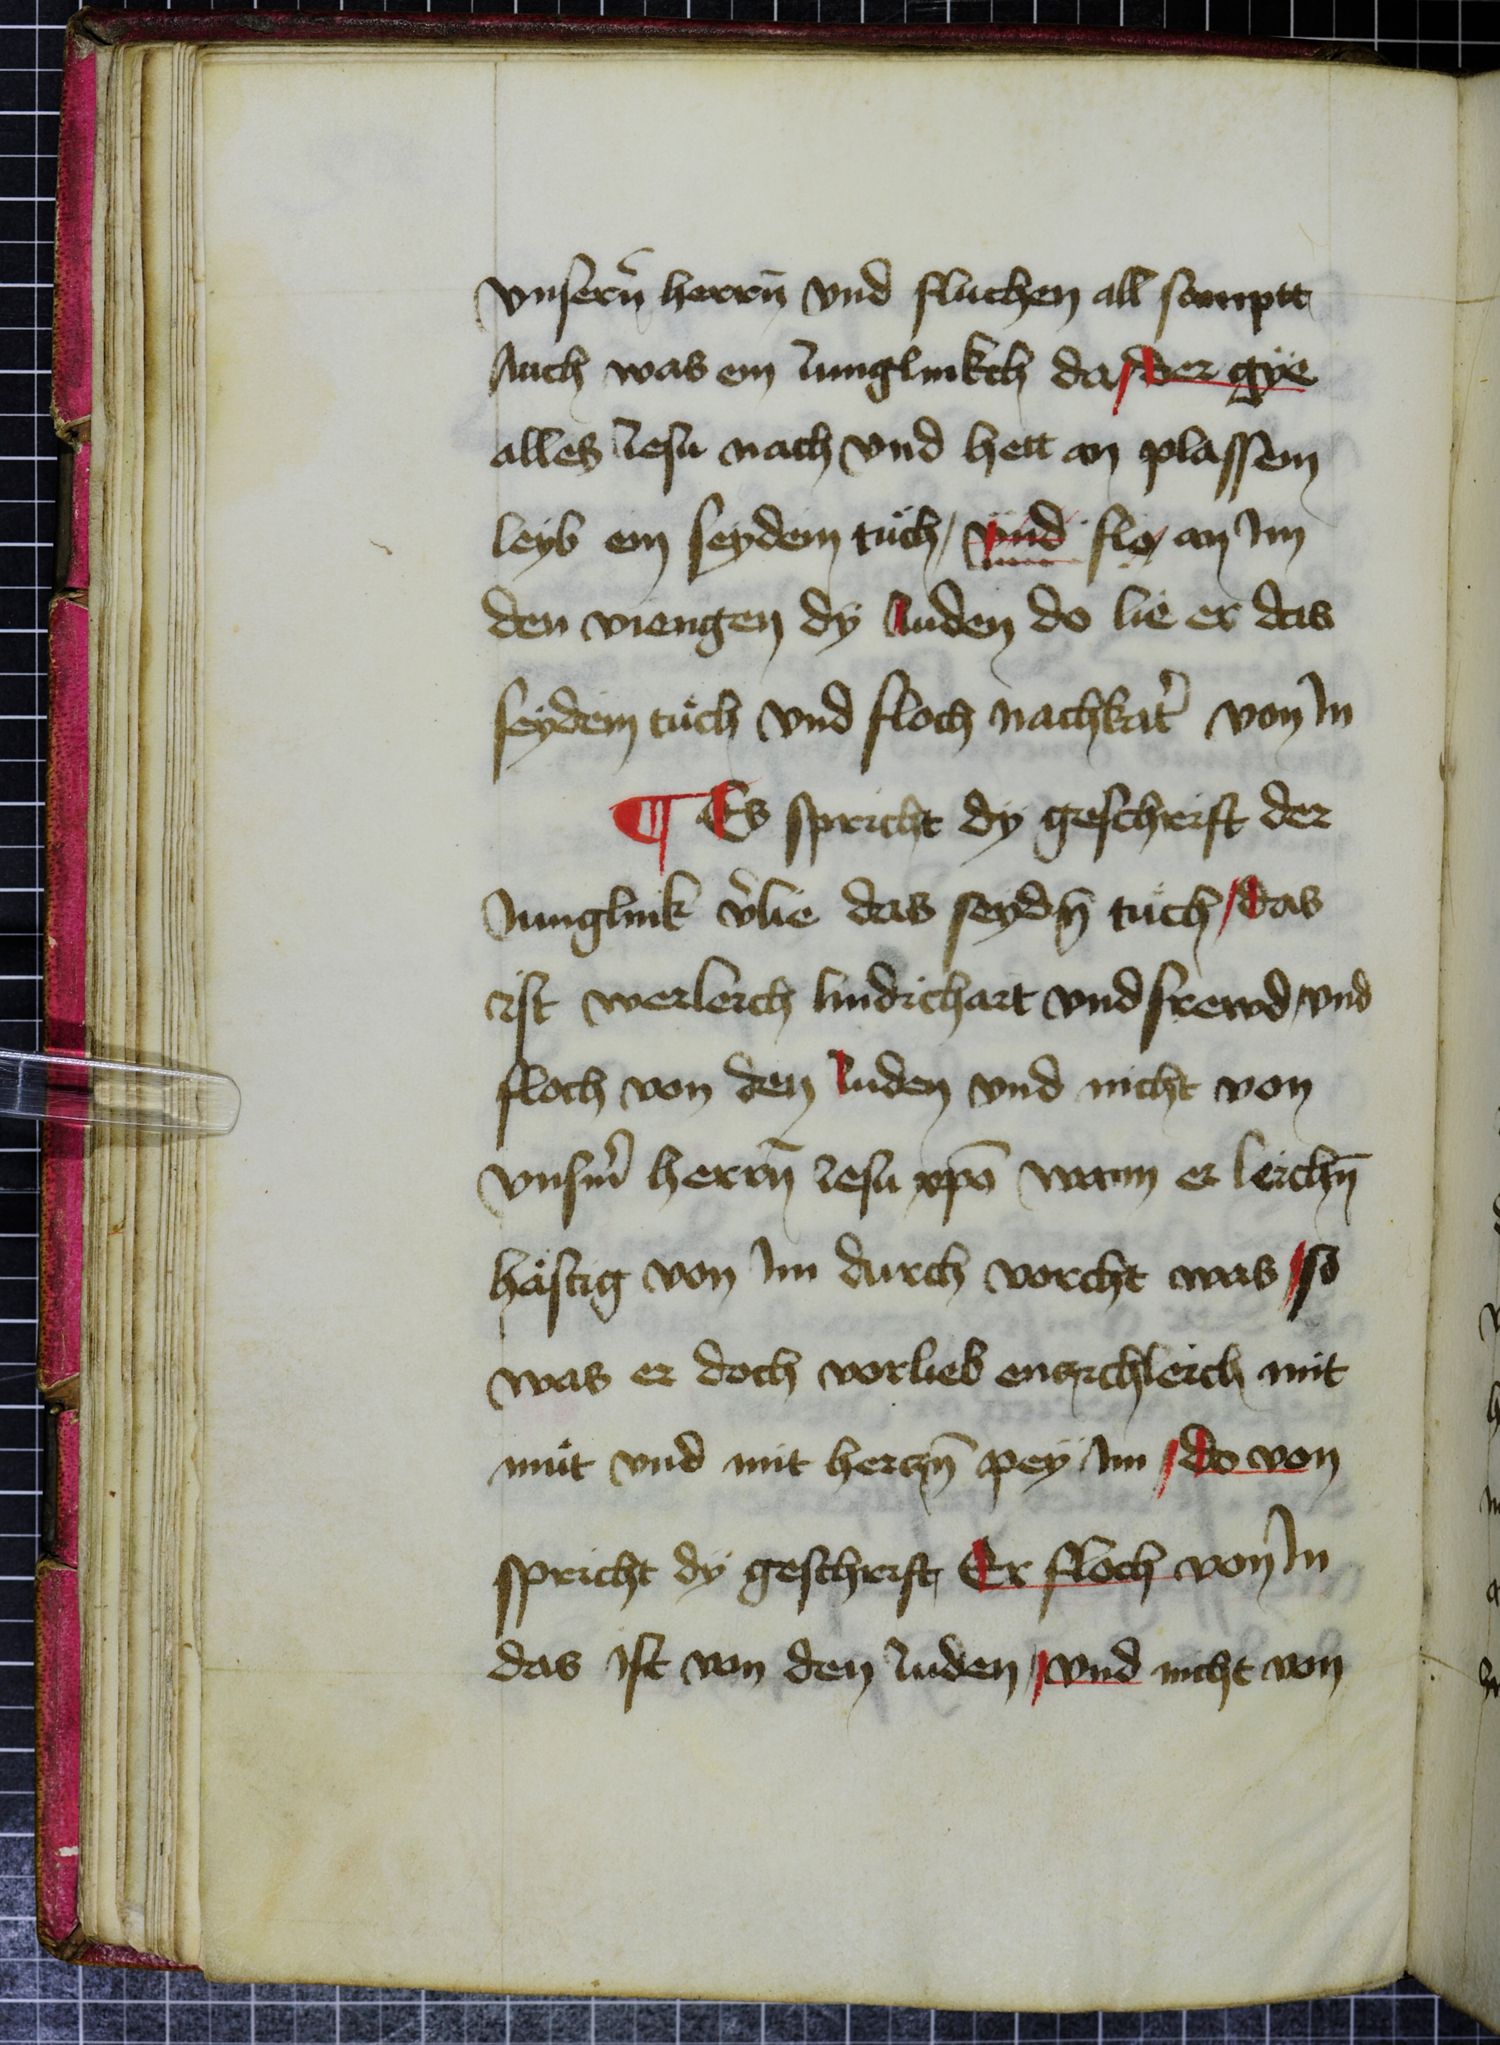 vnsern̄ herrn̄ vnd fluchen all sampt
Auch was ein Junglinkch da / der gye
alles Jesu nach vnd hett an plassem
leyb ein seydein tuͤch / vnd flo an Jm
den viengen dy Juden do lie er das
seydein tuͤch vnd floch nachkat̾ von Jn
¶ Es spricht dy geschrift der
Junglink v̾lie das seydn̄ tuͤch / das
ist werleich lindichait vnd frewd / vnd
floch von den Juden vnd nicht von
vnsm̾ herrn̄ Jesu xpō wann er leichn̄
häftig von Jm durch vorcht was / so
was er doch vorlieb enzichleich mit
muͤt vnd mit herczn̄ pey Jm / do von
spricht dy geschrift Er floch von Jn
das ist von den Juden / vnd nicht von